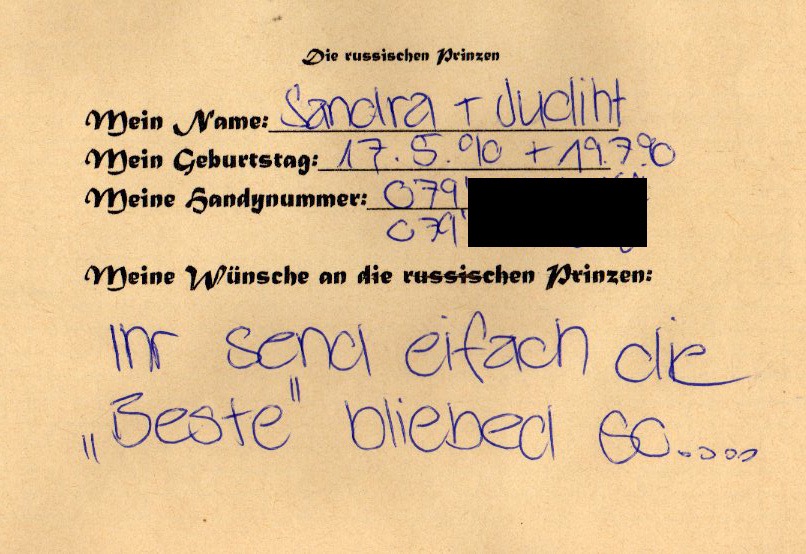 Die russischen Prinzen
Mein Name: Sandra + Judiht
Mein Geburtstag: 17.5.90 + 19.7.90
Meine Handynummer: 079'
079'
Meine Wünsche an die russischen Prinzen:
Ihr send eifach die
„Beste" bliebed so.....